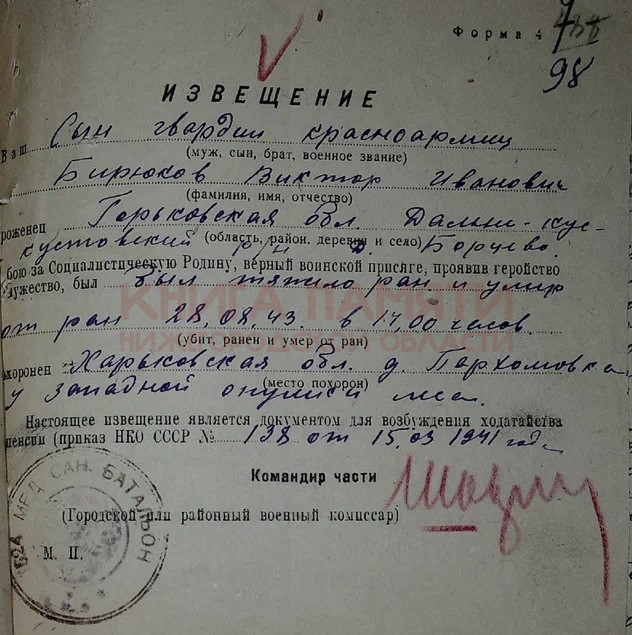 Форма 4
98
ИЗВЕЩЕНИЕ
Ваш Сын гвардии красноармиц
(муж, сын, брат, военное звание)
Бирюков Виктор Иванович
(фамилия, имя, отчество)
роженец Горьковская обл. Дальне-кус-
кустовский р-н д. Борцево.
(область, район, деревня и село)
бою за Социалистическую Родину, верный воинской присяге, проявив геройство
мужество, был был тяжило ран и умир
от ран 28.08.43. в 17,00 часов.
(убит, ранен и умер от ран)
охоронен Харьковская обл. д. Пархомовка
(место похорон)
у западной окулиси леса.
Настоящее извещение является документом для возбуждения ходатайства
пенсии (приказ НКО СССР № 138 от 15.03 1941 года
Командир части
(Городской или районный военный комиссар)
М. П.
МЕД. САН. БАТАЛЬОН
КНИГА ПАМЯТИ
НИЖЕГОРОДСКОЙ ОБЛАСТИ